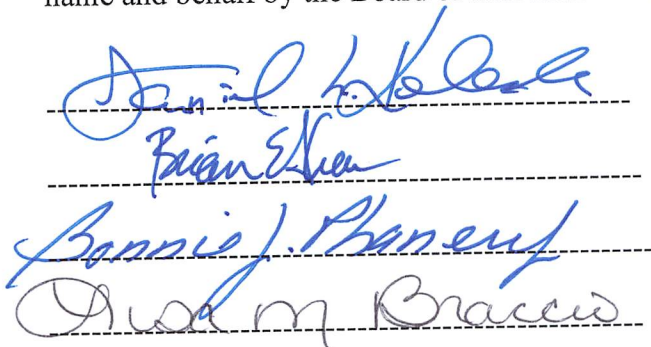 name and behalf by the Board
Daniel L.
Brian E.
Bonnie J. Phaneuf
M Braccio